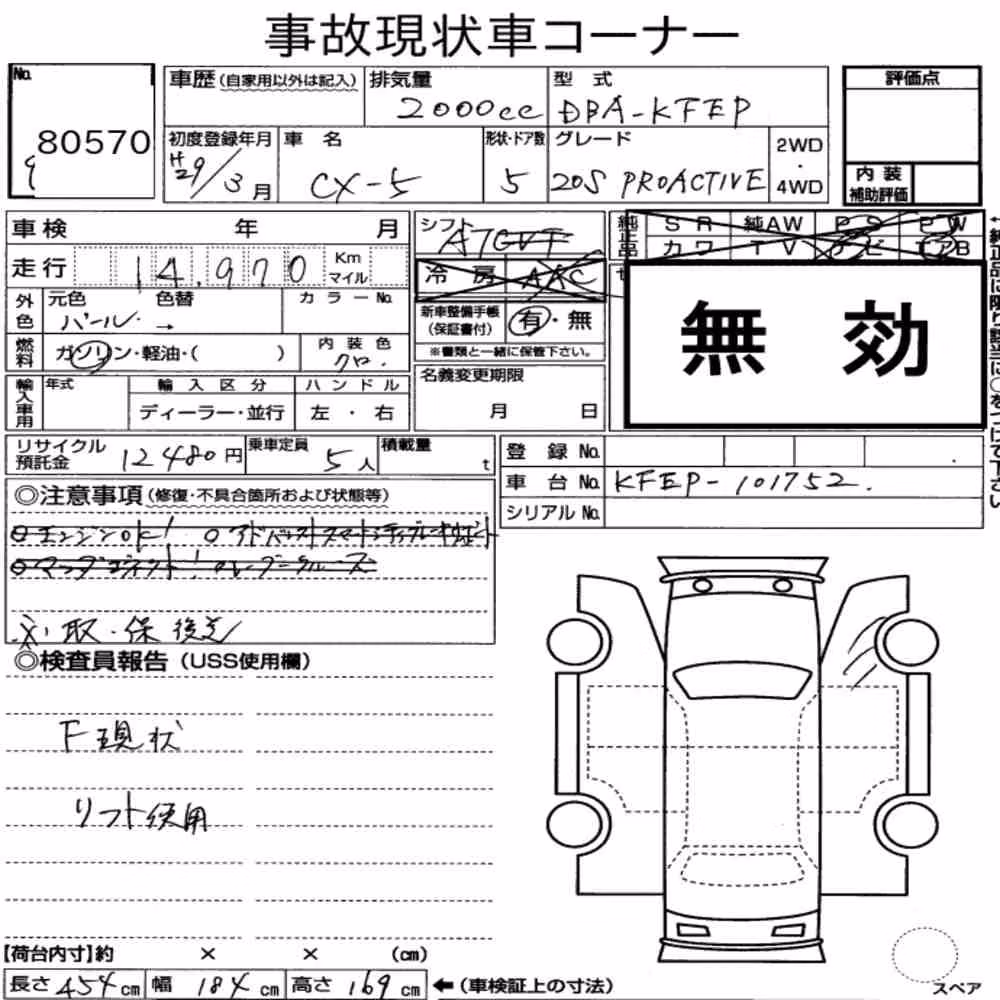 事故現状車コーナー
No.
80570
車歴(自家用以外は記入)
排気量
2000cc
型式
DBA-KFEP
評価点
初度登録年月
H29/3月
車名
CX-5
形状・ドア数
5
グレード
20S PROACTIVE
2WD
・
4WD
内装
補助評価
車検 年 月
シフト
純正品
SR 純AW PS PW
カワ TV
走行 14,970 Km
マイル
冷房 AAC
外色
元色 色替
パール・→
カラーNo.
新車整備手帳
(保証書付)
有・無
※書類と一緒に保管下さい。
無効
燃料
ガソリン・軽油・( )
内装色
クロ.
輸入車用
年式
輸入区分
ディーラー・並行
ハンドル
左・右
名義変更期限
月 日
リサイクル
預託金
12480円
乗車定員
5人
積載量
t
登録No.
車台No.
KFEP-101752.
シリアルNo.
←純正品に限り該当に○をつけて下さい
◎注意事項(修復・不具合箇所および状態等)
エンジンOK!
取・保 後送
◎検査員報告(USS使用欄)
F現状
リフト使用
【荷台内寸】約 × × (cm)
長さ454cm 幅184cm 高さ169cm ←(車検証上の寸法)
スペア